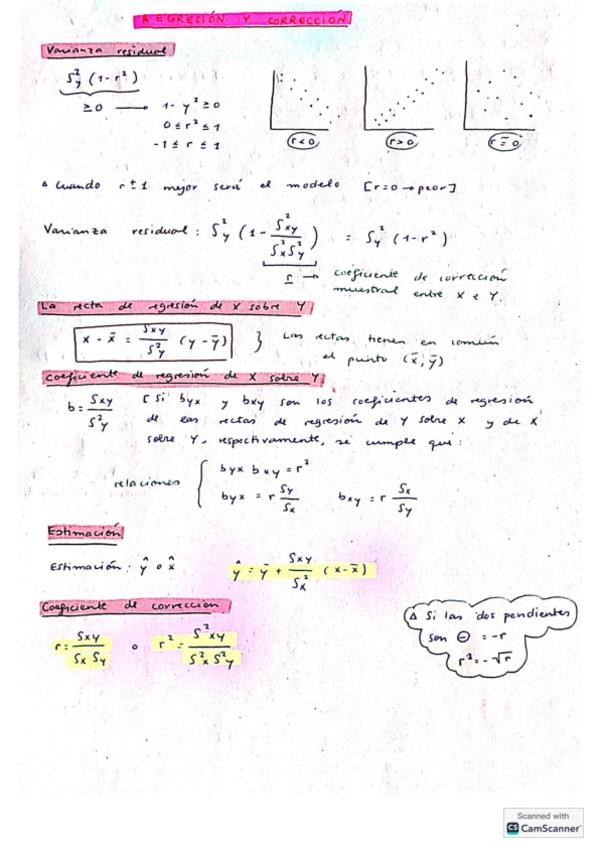 REGRESIÓN Y CORRECCIÓN
Varianza residual
S²y (1-r²)
≥0 → 1- y² ≥0
0 ≤ r² ≤ 1
-1 ≤ r ≤ 1
r<0 r>0 r≃0
Δ Cuando r ± 1 mejor será el modelo [r=0 → peor]
Varianza residual : S²y (1 - S²xy / S²x S²y) = S²y (1-r²)
r → coeficiente de corrección
muestral entre X e Y.
La recta de regresión de X sobre Y
x - x̄ = Sxy / S²y (y - ȳ) } Las rectas tienen en común
el punto (x̄, ȳ)
Coeficiente de regresión de X sobre Y
b = Sxy / S²y [ Si byx y bxy son los coeficientes de regresión
de las rectas de regresión de Y sobre X y de X
sobre Y, respectivamente, se cumple que:
relaciones { byx bxy = r²
byx = r Sy / Sx bxy = r Sx / Sy
Estimación
Estimación: ŷ o x̂ ŷ = ȳ + Sxy / Sx² (x - x̄)
Coeficiente de corrección
r = Sxy / Sx Sy o r² = S²xy / S²x S²y
Δ Si las dos pendientes
son ⊖ = -r
r² = -√r
Scanned with
CS CamScanner